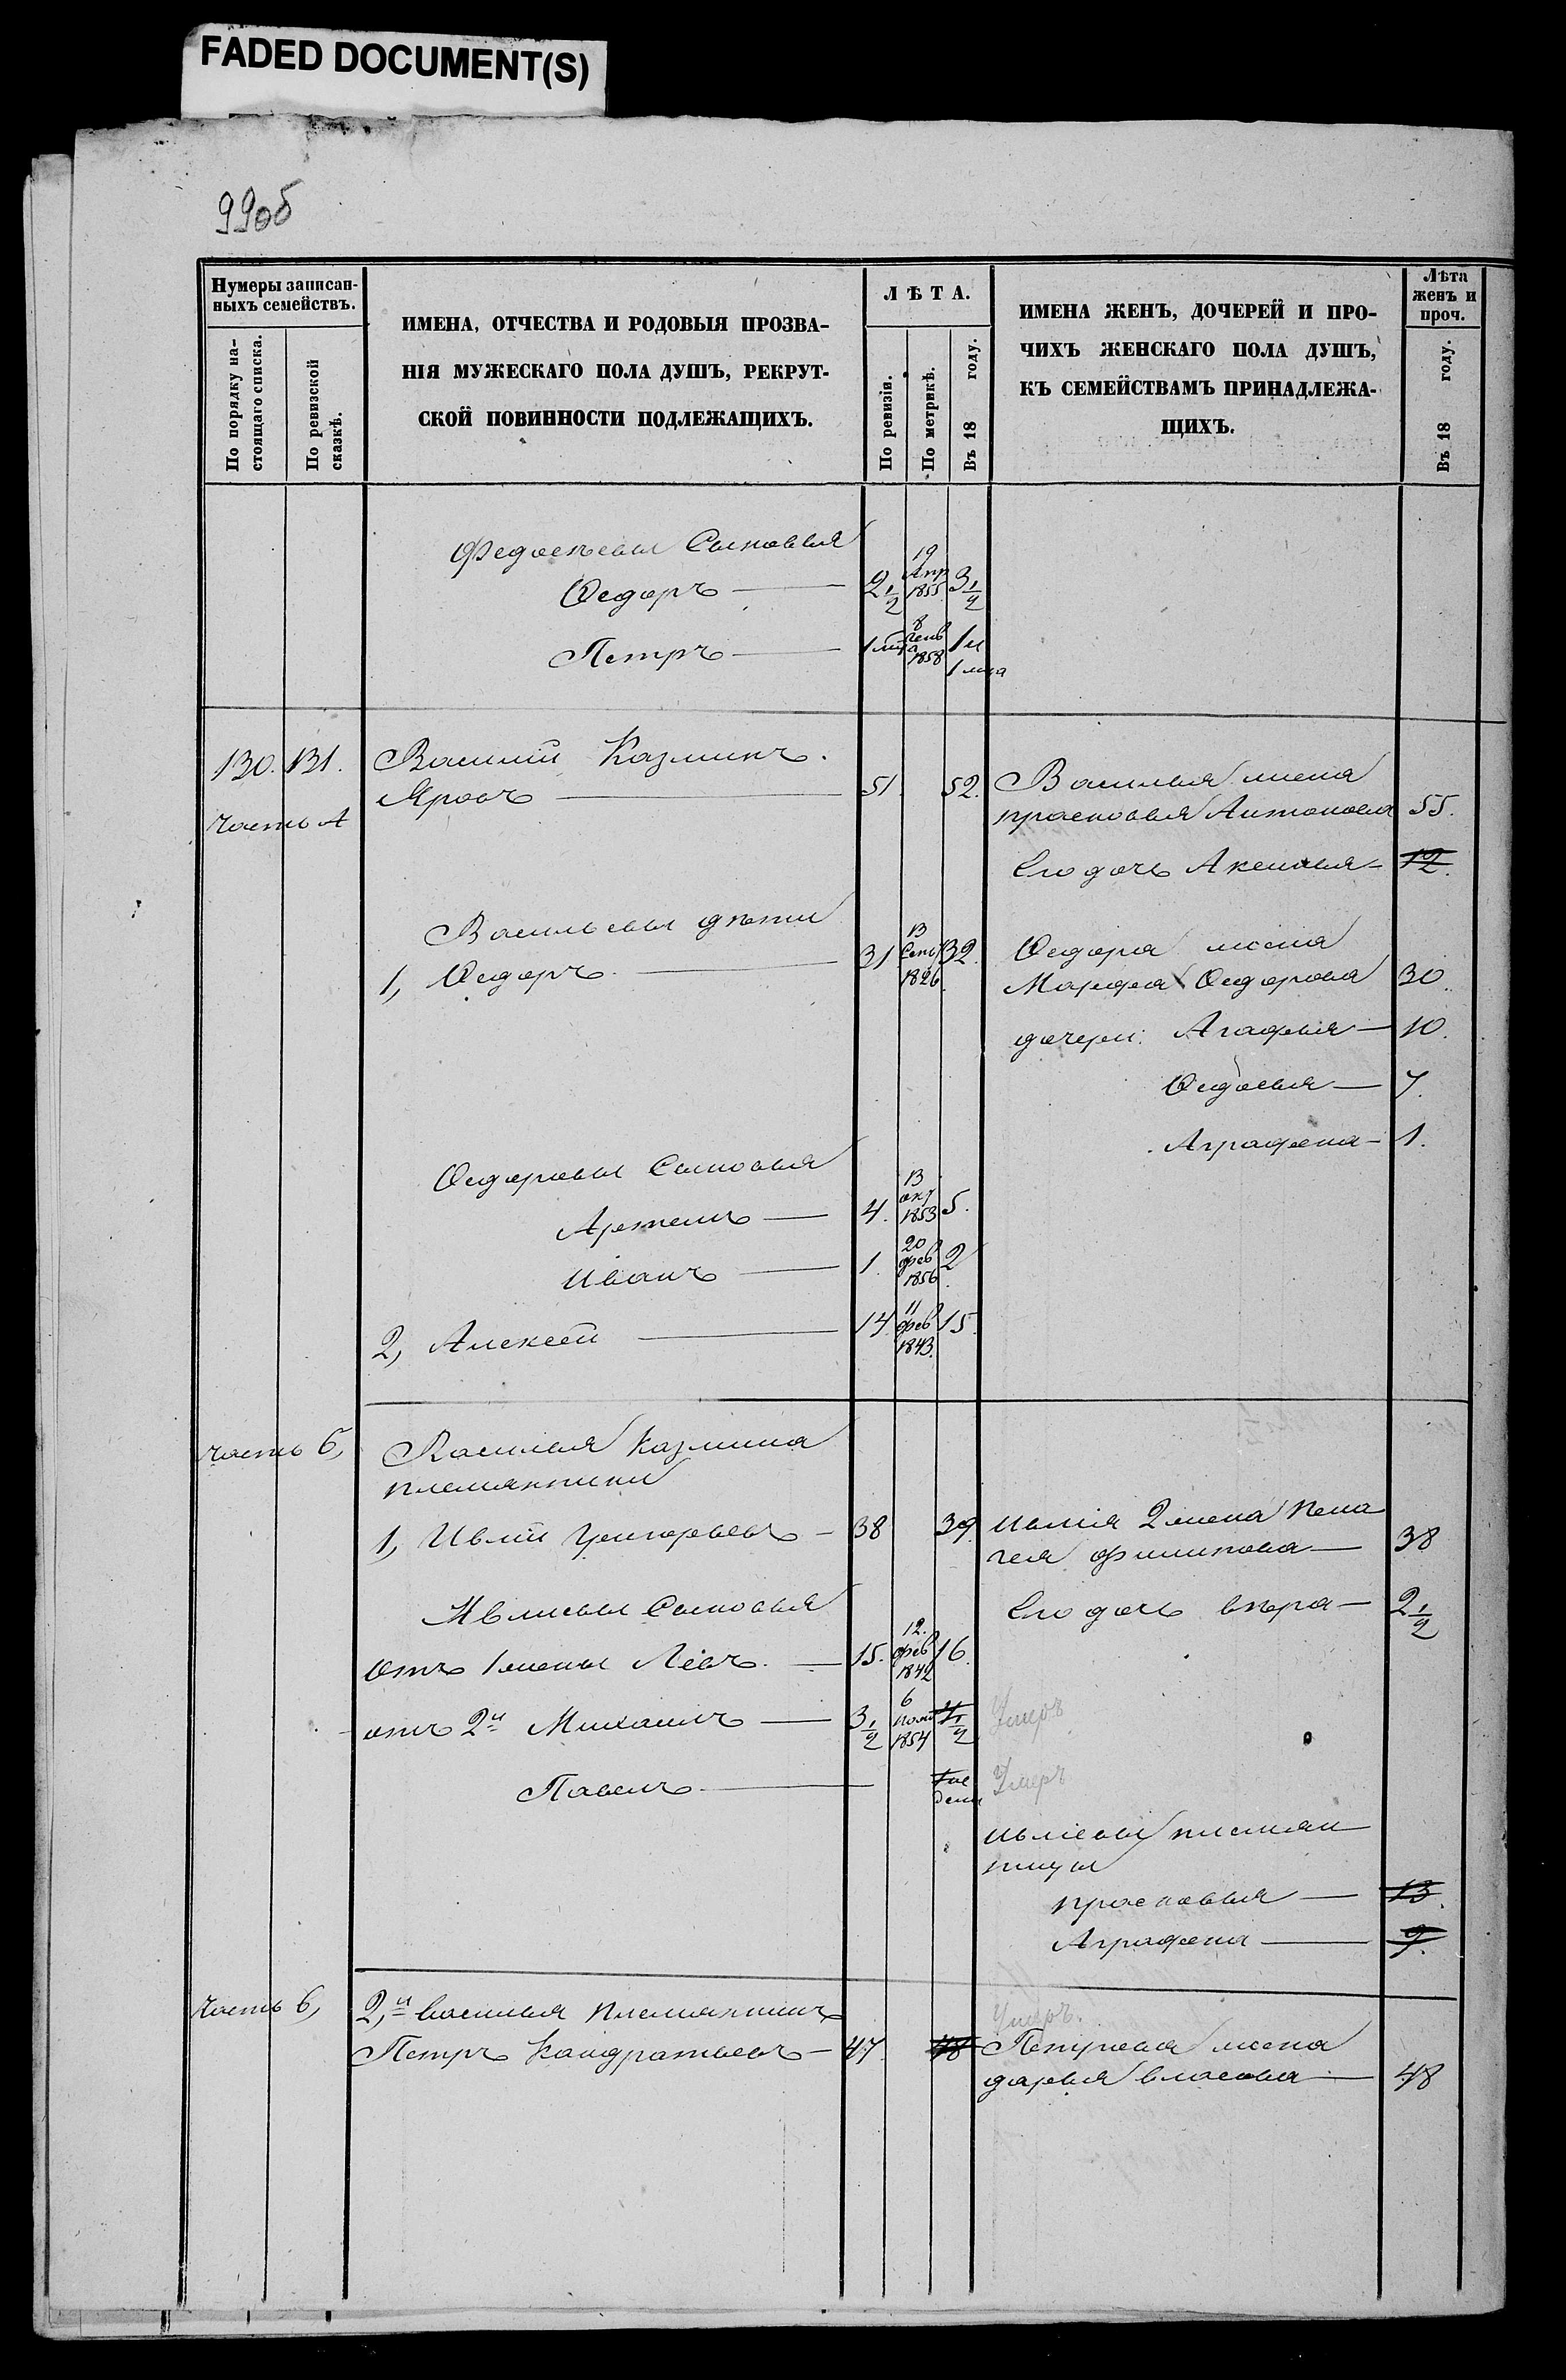 FADED DOCUMENT(S)
99об
Нумеры записан-
ныхъ семействъ.
По порядку на-
стоящаго списка.
По ревизской
сказкѣ.
ИМЕНА, ОТЧЕСТВА И РОДОВЫЯ ПРОЗВА-
НІЯ МУЖЕСКАГО ПОЛА ДУШЪ, РЕКРУТ-
СКОЙ ПОВИННОСТИ ПОДЛЕЖАЩИХЪ.
ЛѢТА.
По ревизіи.
По метрикѣ.
Въ 18 году.
ИМЕНА ЖЕНЪ, ДОЧЕРЕЙ И ПРО-
ЧИХЪ ЖЕНСКАГО ПОЛА ДУШЪ,
КЪ СЕМЕЙСТВАМЪ ПРИНАДЛЕЖА-
ЩИХЪ.
Лѣта
женъ и
проч.
Въ 18 году.
Федосѣевы Сыновья
Ѳедоръ — 2 1/2 19 Апр 1855 3 1/2
Петръ — 8 1858
130. 131. Василій Казминъ.
Яровъ — 51. 52.
часть А
Василья жена
прасковья Антонова 55.
Его дочь Аксинья — 12.
Васильевы дѣти
1, Ѳедоръ — 31 13 Сент 1826. 32.
Ѳедора жена
Марфа Ѳедорова 30.
дочери: Агафья — 10.
Ѳедосья — 7.
Аграфена — 1.
Ѳедоровы Сыновья
Артемъ — 4. 13 окт 1853 5.
Иванъ — 1. 20 фев 1856 2.
2, Алексей — 14 11 фев 1843. 15.
часть б, Василья Казмина
племянники
1, Ивлій Григорьевъ — 38 39.
Ивлія 2 жена Пела
гея Филипова — 38
Ивлиевы Сыновья
Его дочь вѣра — 2 1/2
отъ 1 жены Лёвъ. — 15. 12. фев 1842 16.
отъ 2й Михаилъ — 3 1/2 6 1854 4 1/2 Умеръ
Павелъ — Умеръ
Ивлиевы племян
ницы
прасковья — 13.
Аграфена — 9.
часть б, 2,й василья племянникъ
Умеръ.
Петръ Кондратьевъ — 47. 48
Петрова жена
дарья власова — 48